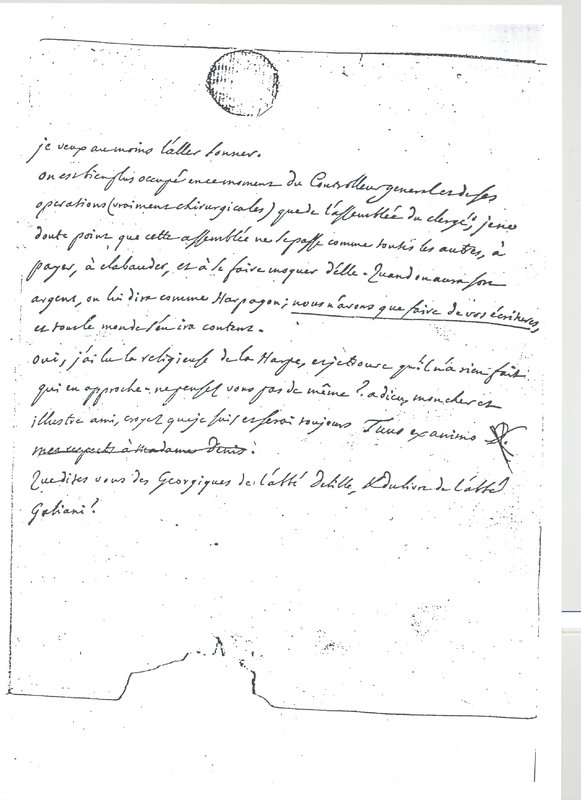 je veux au moins l'aller sonner.
on est bien plus occupé en ce moment du Controlleur general et de ses
operations (vraiment chirurgicales) que de l'assemblée du clergé; je ne
doute point que cette assemblée ne se passe comme toutes les autres, à
payer, à clabauder, et à se faire moquer d'elle. Quand on aura son
argent, on lui dira comme Harpagon; nous n'avons que faire de vos écritures,
et tout le monde s'en ira content.
oui, j'ai lu la religieuse de la Harpe, et je trouve qu'il n'a rien fait
qui en approche. ne pensez vous pas de même? adieu, mon cher et
illustre ami, croyez que je suis et serai toujours Tuus ex animo
mes respects à Madame Denis.
Que dites vous des Georgiques de l'abbé Delille, & du livre de l'abbé
Galiani?